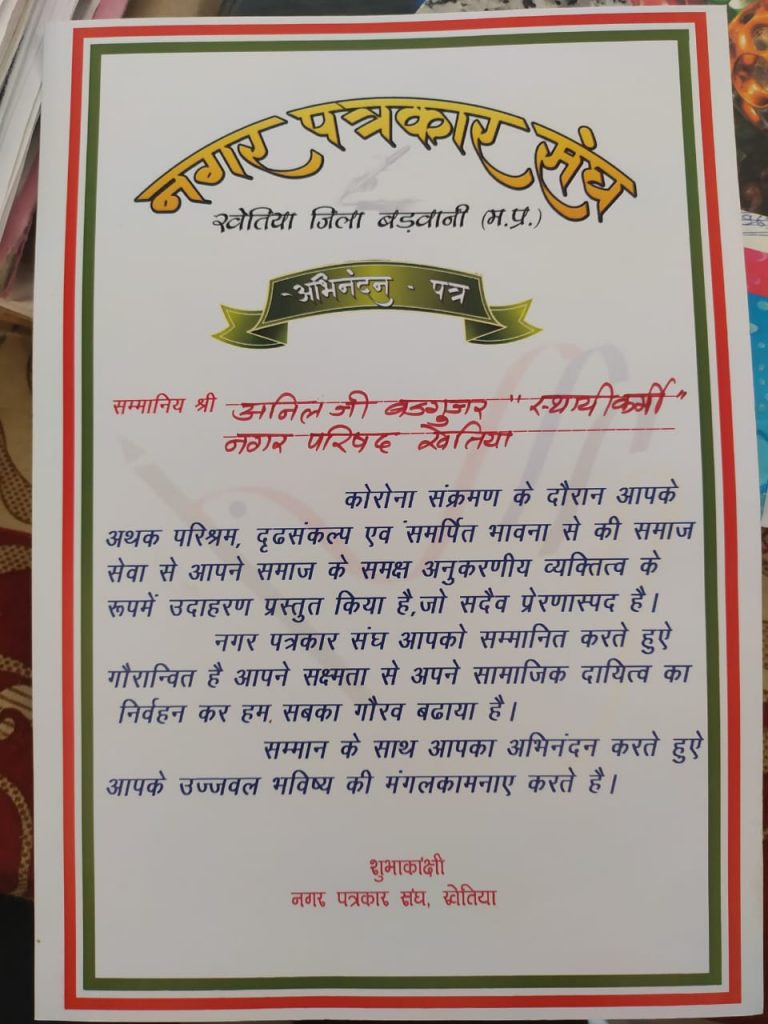 नगर पत्रकार संघ
खेतिया जिला बड़वानी (म.प्र.)
-अभिनंदन - पत्र
सम्मानिय श्री अनिल जी बडगुजर "स्थायीकर्मी"
नगर परिषद खेतिया
कोरोना संक्रमण के दौरान आपके
अथक परिश्रम, दृढसंकल्प एवं समर्पित भावना से की समाज
सेवा से आपने समाज के समक्ष अनुकरणीय व्यक्तित्व के
रूपमें उदाहरण प्रस्तुत किया है,जो सदैव प्रेरणास्पद है।
नगर पत्रकार संघ आपको सम्मानित करते हुऐ
गौरान्वित है आपने सक्ष्मता से अपने सामाजिक दायित्व का
निर्वहन कर हम. सबका गौरव बढाया है।
सम्मान के साथ आपका अभिनंदन करते हुऐ
आपके उज्जवल भविष्य की मंगलकामनाए करते है।
शुभाकांक्षी
नगर पत्रकार संघ, खेतिया